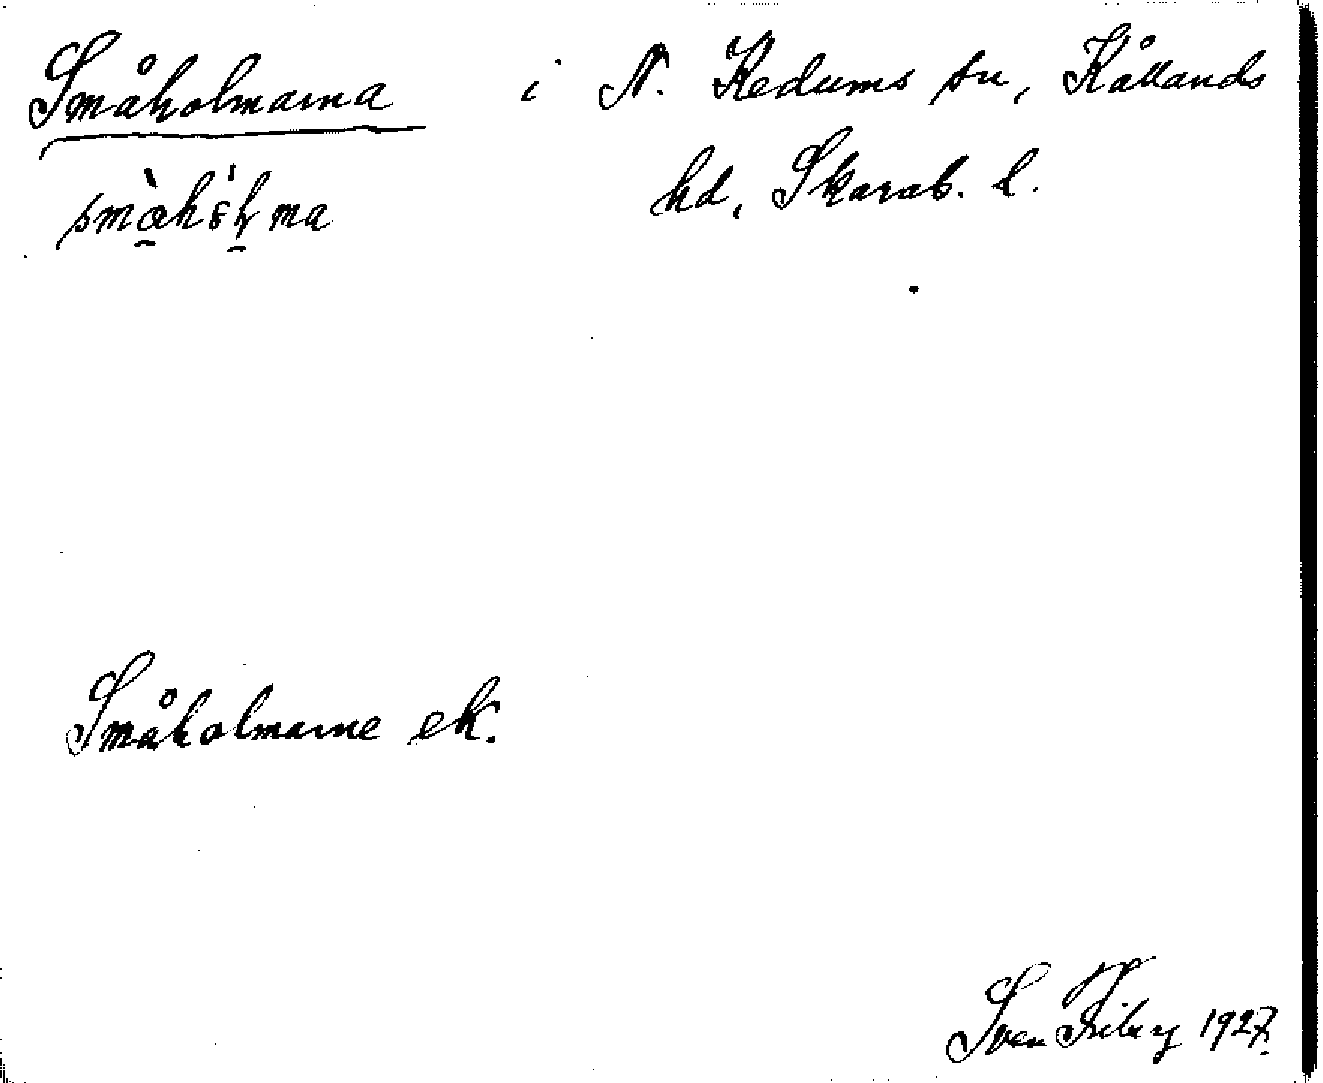 Småholmarna i N. Kedums sn, Kållands
hd, Skarab. l.
Småholmarne ek.
Sven Friby 1927.